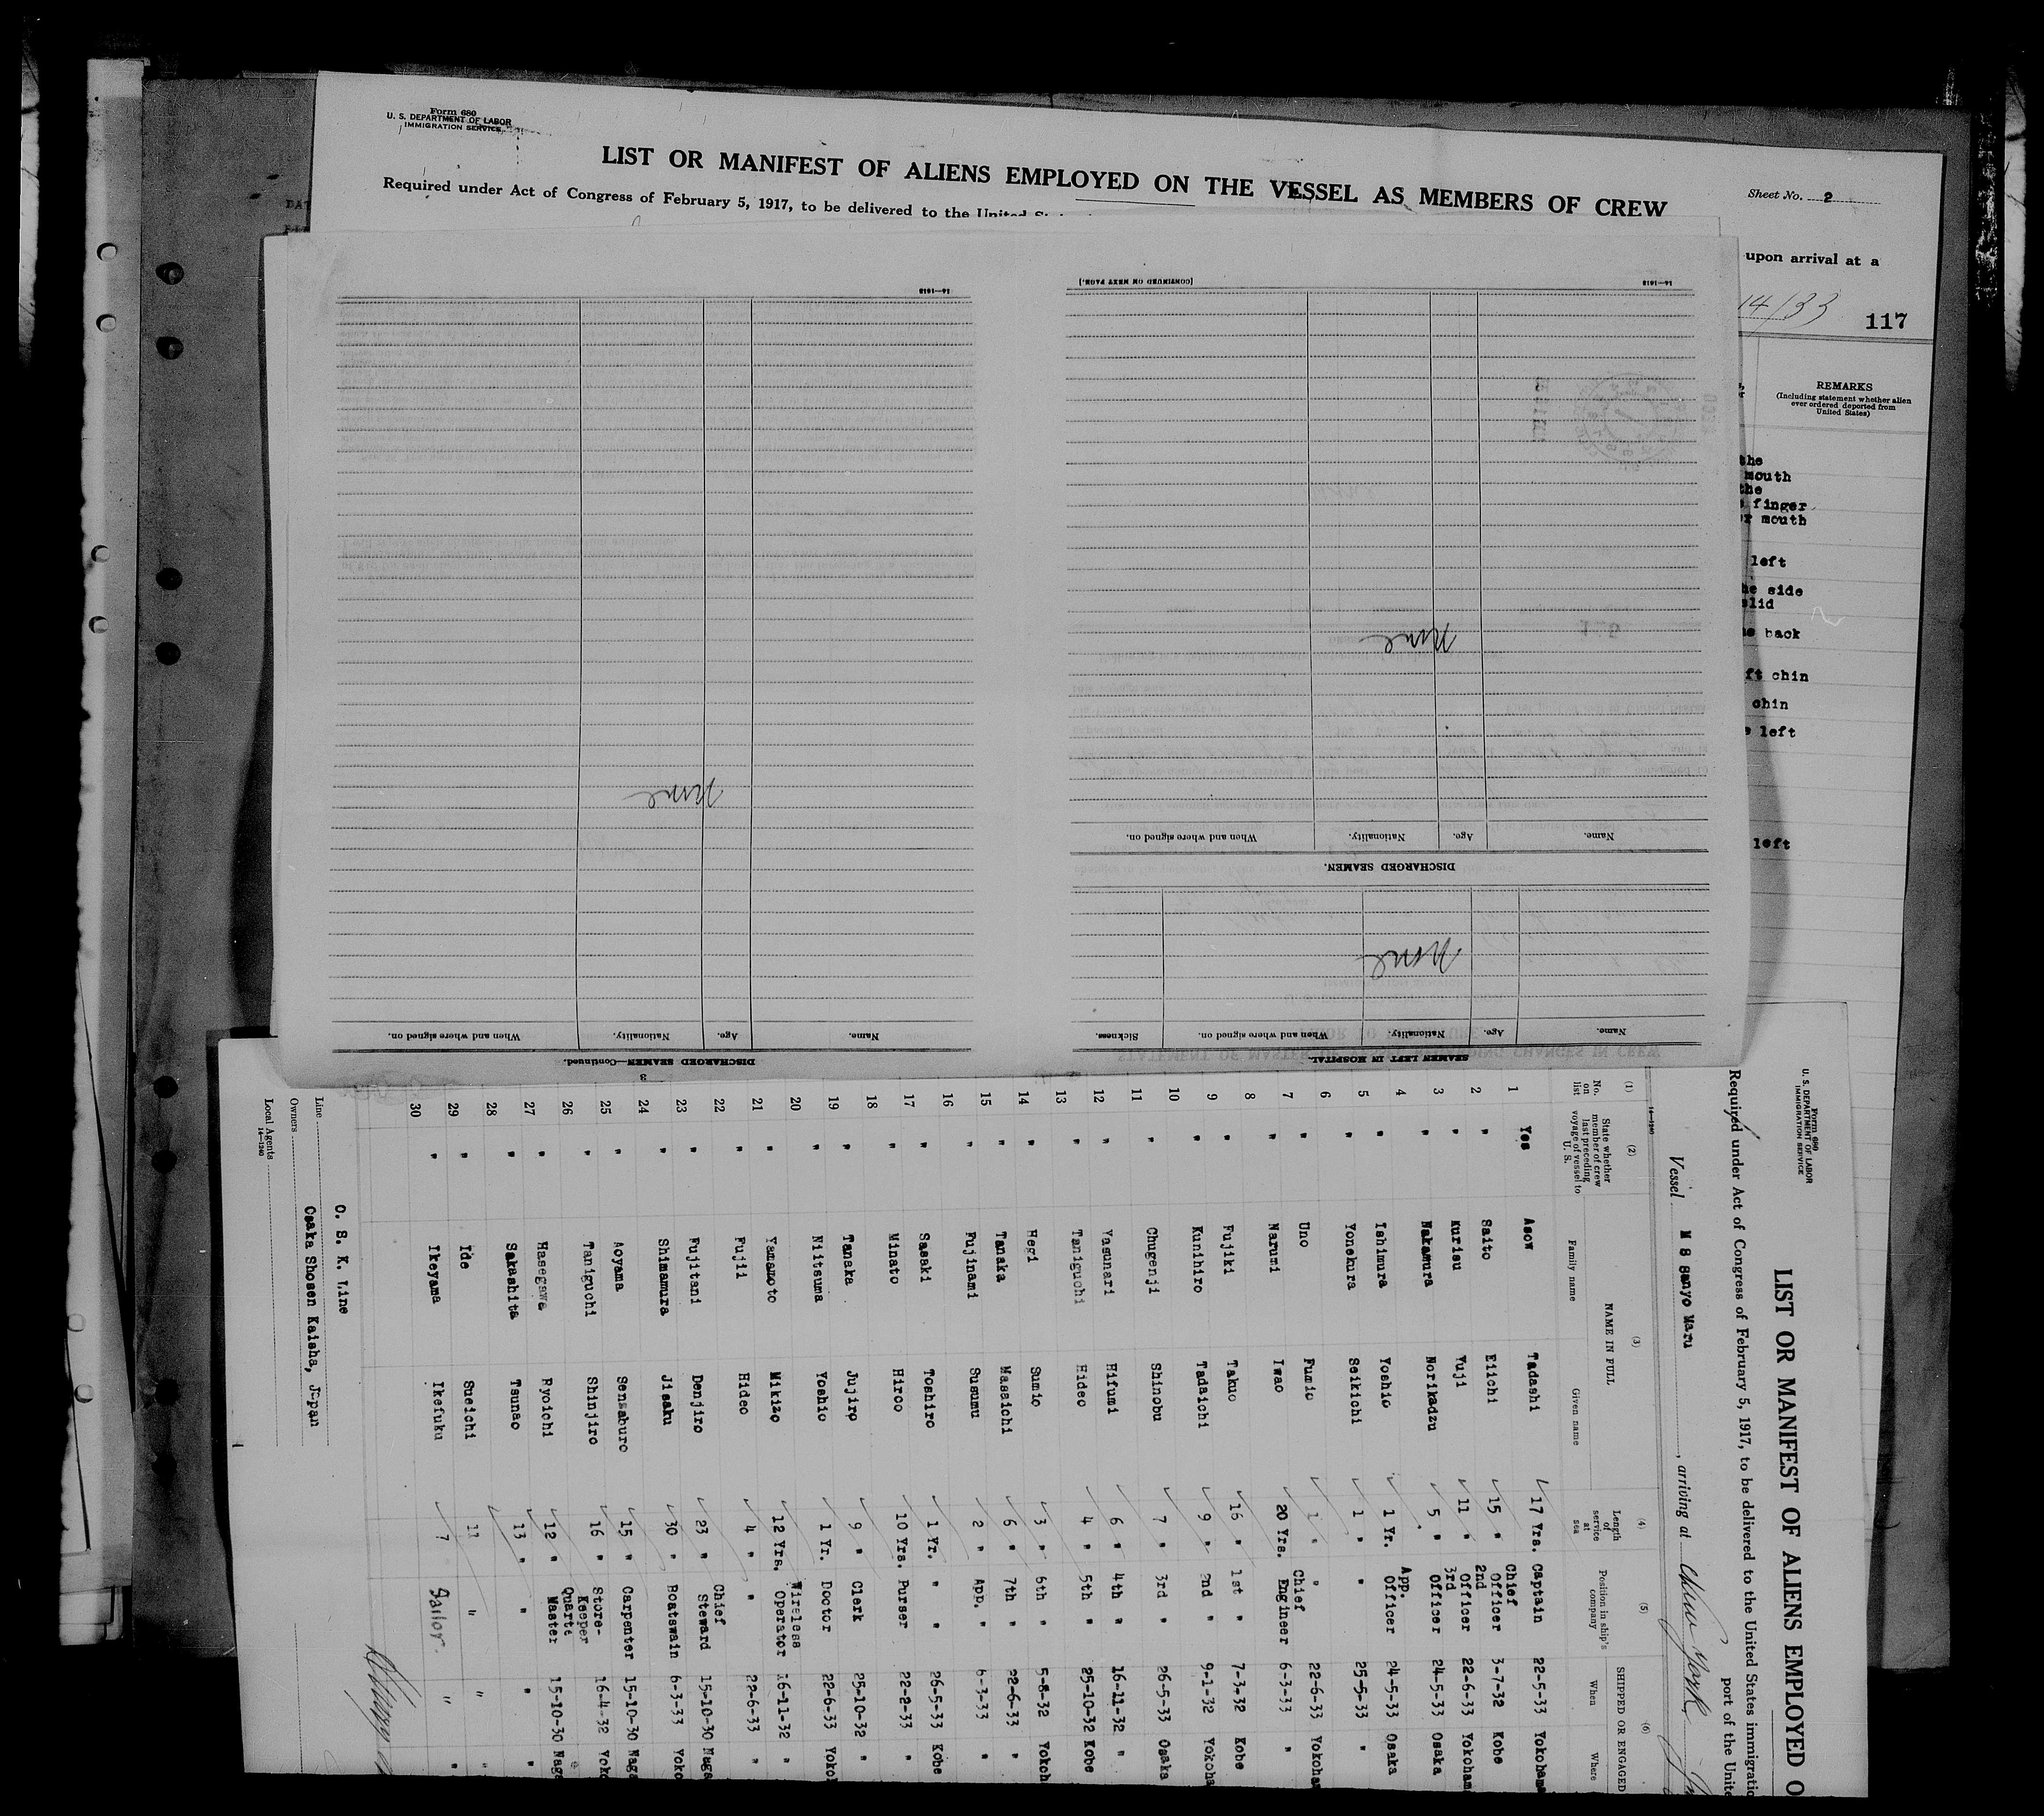 Form 680
U. S. DEPARTMENT OF LABOR
IMMIGRATION SERVICE
LIST OR MANIFEST OF ALIENS EMPLOYED ON THE VESSEL AS MEMBERS OF CREW
Sheet No. 2
Required under Act of Congress of February 5, 1917, to be delivered to the United
upon arrival at a
14/33
117
REMARKS
(Including statement whether alien
ever ordered deported from
United States)
the
mouth
the
finger
mouth
left
side
back
chin
chin
left
left
14—1618
[CONTINUED ON NEXT PAGE.]
14—1618
None
None
None
Name. Age. Nationality. When and where signed on.
DISCHARGED SEAMEN.
Name. Age. Nationality. When and where signed on. Sickness.
SEAMEN LEFT IN HOSPITAL.
Name. Age. Nationality. When and where signed on.
DISCHARGED SEAMEN—Continued.
3
STATEMENT OF MASTER
CHANGES IN CREW
Form 680
U. S. DEPARTMENT OF LABOR
IMMIGRATION SERVICE
LIST OR MANIFEST OF ALIENS EMPLOYED O
Required under Act of Congress of February 5, 1917, to be delivered to the United States immigratio
port of the Unite
Vessel M S Sanyo Maru, arriving at New York
14—1240
(1) (2) (3) (4) (5) (6)
No. on list
State whether member of crew last preceding voyage of vessel to U. S.
NAME IN FULL
Family name Given name
Length of service at sea
Position in ship's company
SHIPPED OR ENGAGED
When Where
1 Yes Asow Tadashi 17 Yrs. Captain 22-5-33 Yokohama
2 " Saito Eiichi 15 " Chief Officer 3-7-32 Kobe
3 " Kurisu Yuji 11 " 2nd Officer 22-6-33 Yokoham
4 " Nakamura Norikadzu 5 " 3rd Officer 24-5-33 Osaka
5 " Ishimura Yoshio 1 Yr. App. Officer 24-5-33 Osaka
6 " Yonekura Seikichi 1 " " 25-5-33 "
7 " Uno Fumio 1 " " 22-6-33 Yokoham
8 " Narumi Iwao 20 Yrs. Chief Engineer 6-3-33 "
9 " Fujiki Takuo 16 " 1st " 7-3-32 Kobe
10 " Kunihiro Tadaichi 9 " 2nd " 9-1-32 Yokoha
11 " Chugenji Shinobu 7 " 3rd " 26-5-33 Osaka
12 " Yasunari Hifumi 6 " 4th " 16-11-32 "
13 " Taniguchi Hideo 4 " 5th " 25-10-32 Kobe
14 " Hegi Sumio 3 " 6th " 5-8-32 Yokoh
15 " Tanaka Masaichi 6 " 7th " 22-6-33 "
16 " Fujinami Susumu 2 " App. " 6-3-33 "
17 " Sasaki Toshiro 1 Yr. " " 26-5-33 Kobe
18 " Minato Hiroo 10 Yrs. Purser 22-2-33 "
19 " Tanaka Jujiro 9 " Clerk 25-10-32 "
20 " Niitsuma Yoshio 1 Yr. Doctor 22-6-33 Yokoh
21 " Yamamoto Mikizo 12 Yrs. Wireless Operator 16-11-32 "
22 " Fujii Hideo 4 " " 22-6-33 "
23 " Fujitani Denjiro 23 " Chief Steward 15-10-30 Naga
24 " Shimamura Jisaku 30 " Boatswain 6-3-33 Yoko
25 " Aoyama Sensaburo 15 " Carpenter 15-10-30 Naga
26 " Taniguchi Shinjiro 16 " Store-Keeper 16-4-32 Yoko
27 " Hasegawa Ryoichi 12 " Quarte Master 15-10-30 Naga
28 " Sakashita Tsunao 13 " " " "
29 " Ide Sueichi 11 " " "
30 " Ikeyama Ikefuku 7 Sailor " "
Line O. S. K. Line
Owners Osaka Shosen Kaisha, Japan
Local Agents
14—1240